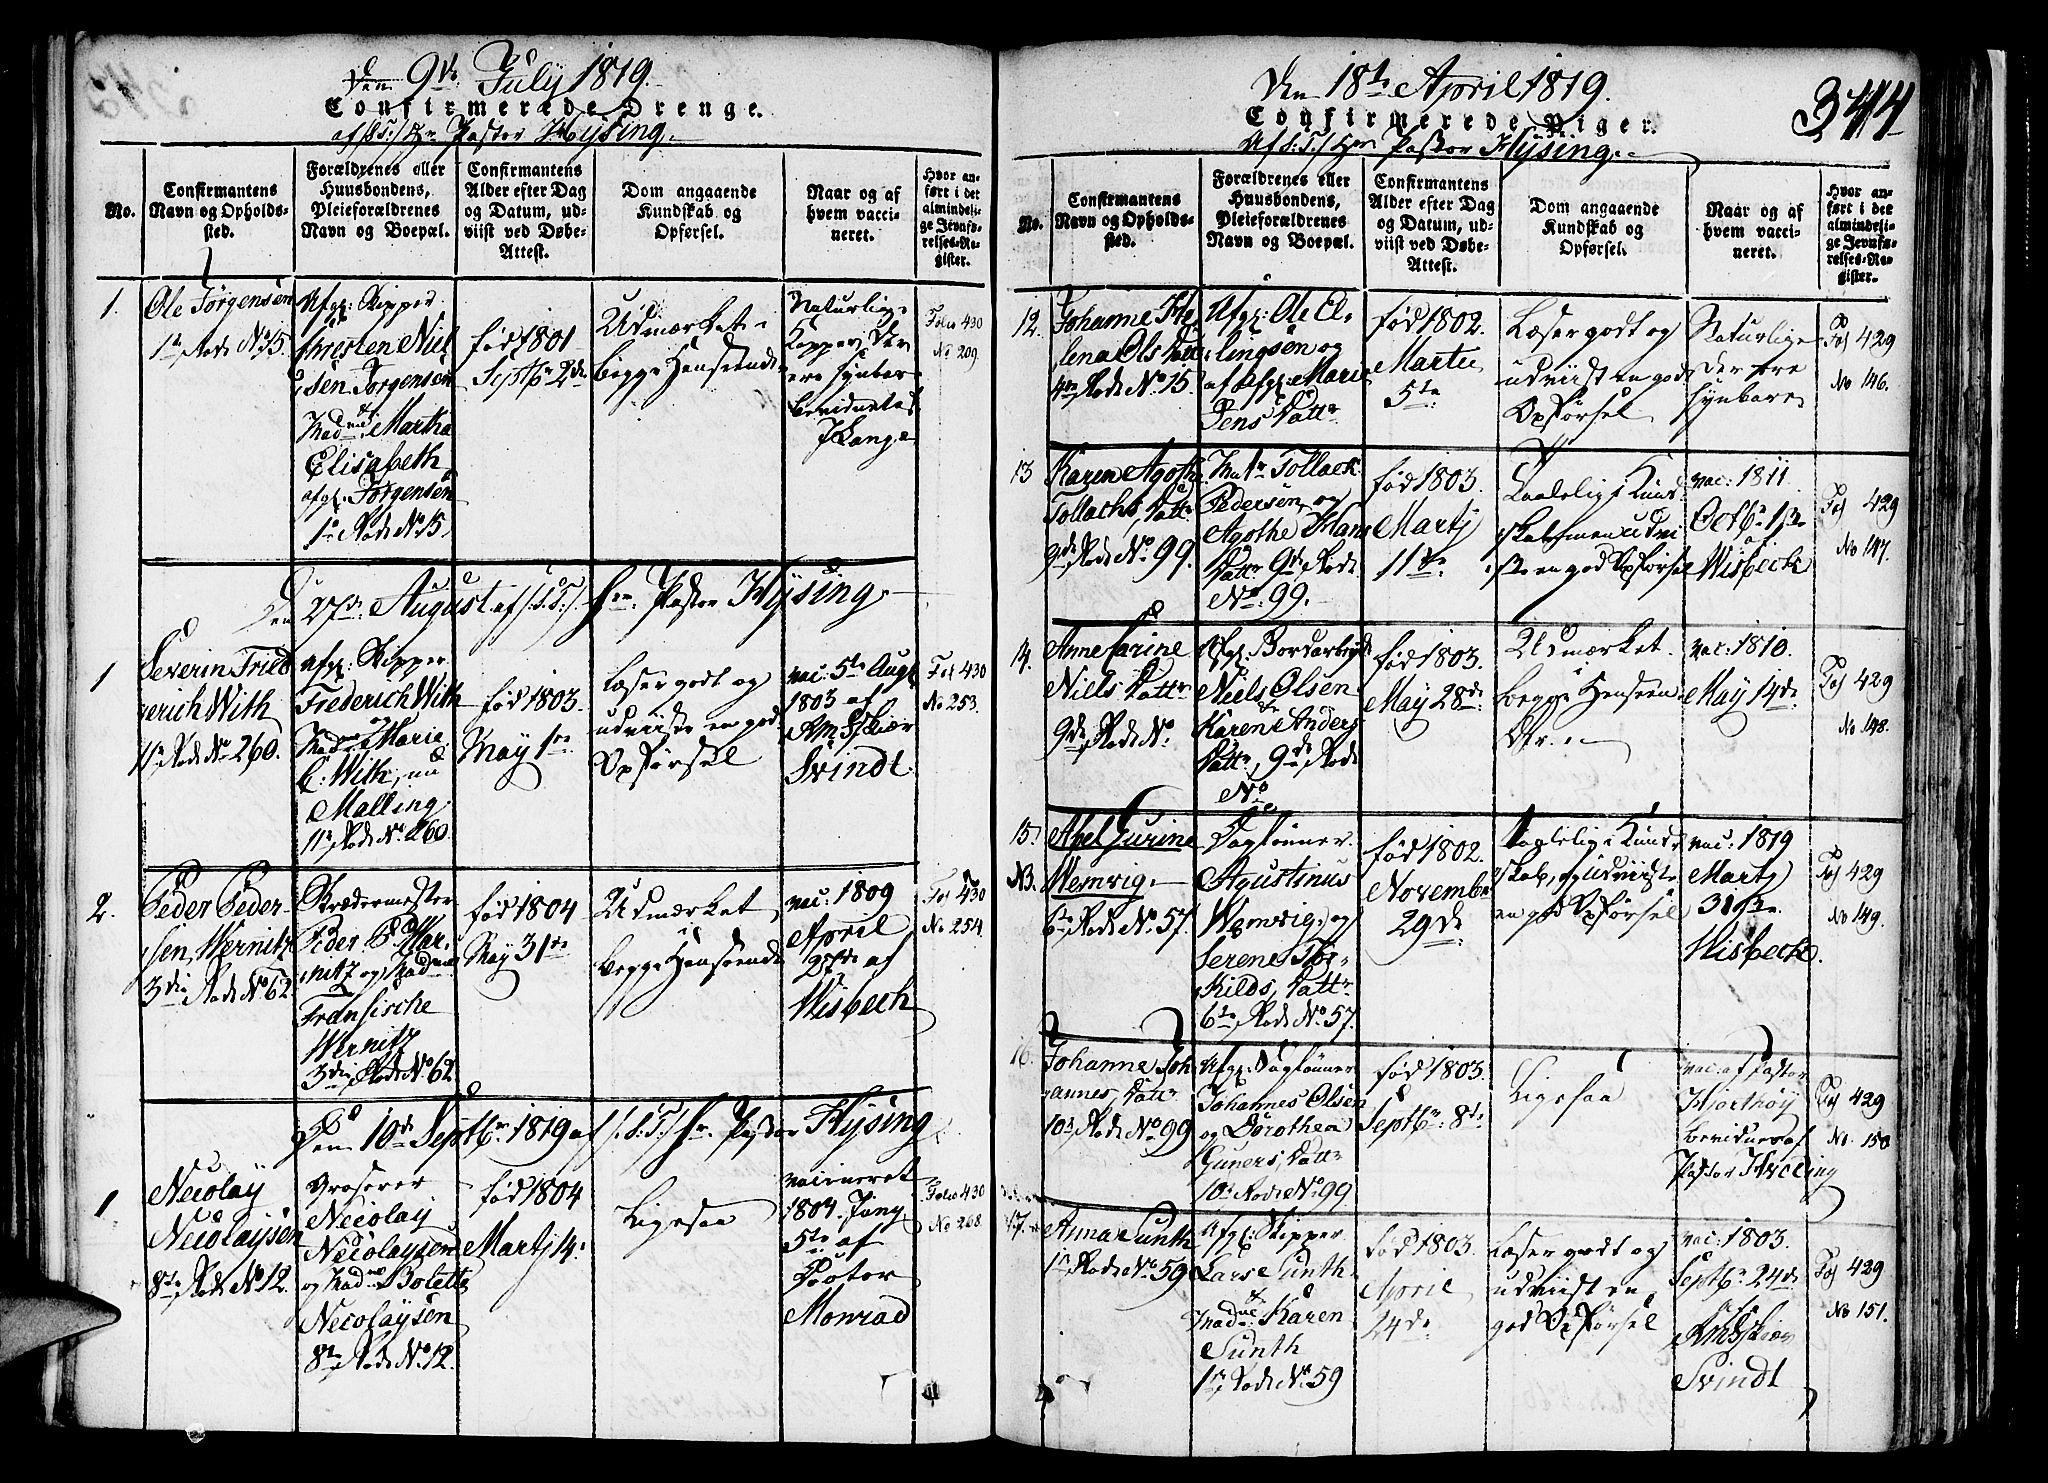 Den 9de July 1819.
Confirmerede Drenge.
af S:T: Hr Pastor Hysing.
No.
Confirmantens Navn og Opholds-sted.
Forældrenes eller Huusbondens, Pleieforældrenes Navn og Boepæl.
Confirmantens Alder efter Dag og Datum, ud-viist ved Døbe-Attest.
Dom angaaende Kundskab og Opførsel.
Naar og af hvem vacci-neret.
Hvor an-ført i det almindeli-ge Jevnfø-relses-Re-gister.
1.
Ole Jørgensen
1te Rode No 15.
Afgl: Skipper
Chresten Niel
sen Jørgensen
Mad: Martha
Elisabeth
afgl: Jørgensen
1te Rode No 15
født 1801
Septbr 2de
Udmærket i
begge Henseende
Naturlige
Kopper, der
ere synbare
bevidnet af
J Lange
Folio 430
No 209.
Den 27de August af S:T: Hr. Pastor Hysing.
1
Severin Fried
erich With
11te Rode No 260.
Afgl: Skipper
Frederich With
Mad: Marie
C: With, nu
Malling
11te Rode No 260.
født 1803.
May 1te
Læser godt og
udviiste en god
Opførsel
vac: 5te Augt
1803 af
Amtskier
Svindt.
Fol 430
No 253.
2.
Peder Peder
sen, Wernitz
3die Rode No 62
Skrædermester
Peder P
nitz og Mad
Fransische
Wernitz
3die Rode No 62
født 1804
May 31te
Udmærket
i
begge Henseende
vac: 1809
April
27de af
Wisbech
Fol 430
No 254.
Den 10de Septbr 1819 af S:T: Hr. Pastor Hysing
1
Necolay
Necolaysen
8te Rode No 12.
Groserer
Necolay
Necolaysen
og Mad Bolette
Necolaysen
8te Rode No 12.
født 1804
Martj 14.
Ligesaa
vaccineret
1804. Juny
5te af
Doctor
Monrad
Folio 430
No 268.
Den 18te April 1819.
Confirmerede Piger.
Af S:T: Hr Pastor Hysing.
344
No.
Confirmantens Navn og Opholds-sted.
Forældrenes eller Huusbondens, Pleieforældrenes Navn og Boepæl.
Confirmantens Alder efter Dag og Datum, ud-viist ved Døbe-Attest.
Dom angaaende Kundskab og Opførsel.
Naar og af hvem vacci-neret.
Hvor an-ført i det almindeli-ge Jevnfø-relses-Re-gister.
12.
Johanne He
lena Ols Dattr
4de Rode No 15.
Afgl: Ole El
lingsen og
afgl: Marie
Jens Dattr
født 1802.
Martii
5te
Læser godt og
udviist en god
Opførsel
Naturlige
der ere
synbare
Fol 429
No 146.
13
Karen Agoth
Tollachs Dattr
9de Rode No 99.
Tollack
Pedersen og
Agothe Hans
Dattr 9de Rode
No: 99.
født 1803.
Martj
11te
Taalelig i Kund
skab, men udvi
ste en god Opførsel
vac: 1811
Octbr 1te
af
Wisbeck
Fol 429
No 147.
14.
Anne Carine
Niels Dattr
9de Rode No
Afgl: Bordarbeyd
Niels Olsen
Karen Anders
Dattr, 9de Rode
No
født 1803.
May 28de
Udmærket
i
begge Henseen
der.
vac: 1810.
May 14de
Fol 429
No 148.
15.
NB.
Abel Gurine
Wemvig.
6te Rode No 57.
Daglønner
Agustinus
Wemvig, og
Serene Tør
kilds, Dattr
6te Rode No 57.
født 1802.
Novembr
29de
Taalelig i Kund
skab, og udviiste
en god Opførsel
vac: 1819
Martj
31te
Wisbeck.
Fol 429
No 149.
16.
Johanne Joh
annes, Dattr
10de Rode No 99
Afgl: Daglønner
Johannes Olsen
og Dorothea
Guners, Dattr
10de Rode No 99.
født 1803.
Septbr: 8de
Ligesaa
vac: af Pastor
Hjorthøy
bevidnes af
Pastor Hveding
Fol 429
No. 150
17.
Anna Sunth
1te Rode No 59
Afgl: Skipper
Lars Sunth
Mad: Karen
Sunth
1te Rode No: 59
født 1803.
April
24de
Læser godt og
udviist en
god Opførsel
vac: 1803.
Septbr 24de
af
Amtskier
Svindt
Fol 429
No 151.